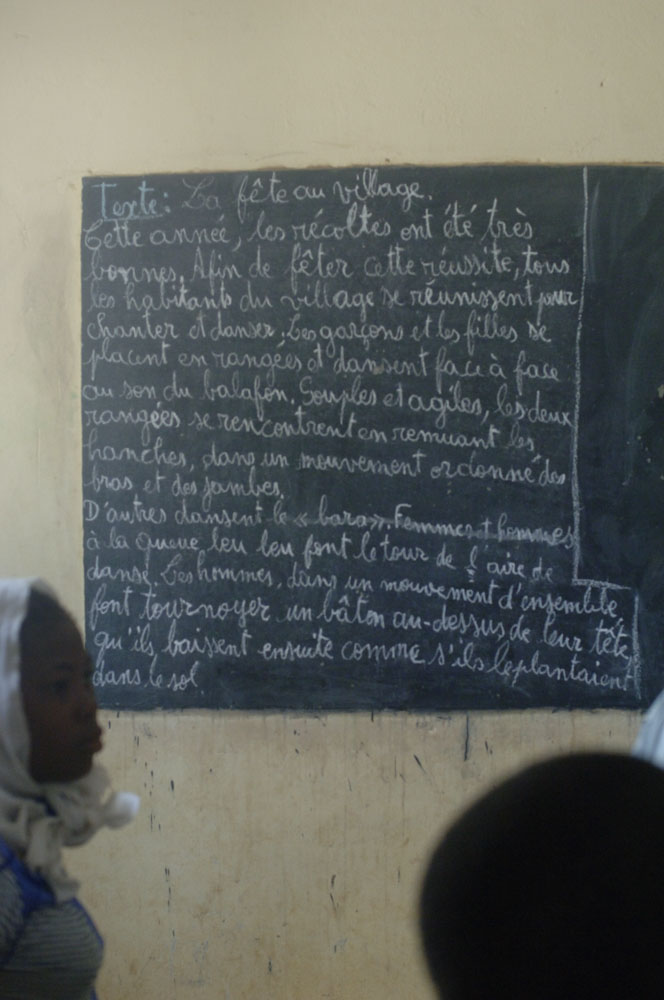 Texte: La fête au village.
Cette année, les récoltes ont été très
bonnes. Afin de fêter cette réussite, tous
les habitants du village se réunissent pour
chanter et danser. Les garçons et les filles se
placent en rangées et dansent face à face
au son du balafon. Souples et agiles, les deux
rangées se rencontrent en remuant les
hanches, dans un mouvement ordonné des
bras et des jambes.
D'autres dansent le « bara ». Femmes et hommes
à la queue leu leu font le tour de l'aire de
danse. Les hommes, dans un mouvement d'ensemble,
font tournoyer un bâton au-dessus de leur tête,
qu'ils baissent ensuite comme s'ils le plantaient
dans le sol.